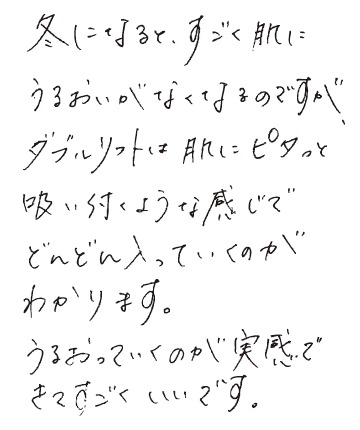 冬になると、すごく肌に
うるおいがなくなるのですが、
ダブルリフトは肌にピタっと
吸い付くような感じで
どんどん入っていくのが
わかります。
うるおっていくのが実感で
きてすごくいいです。